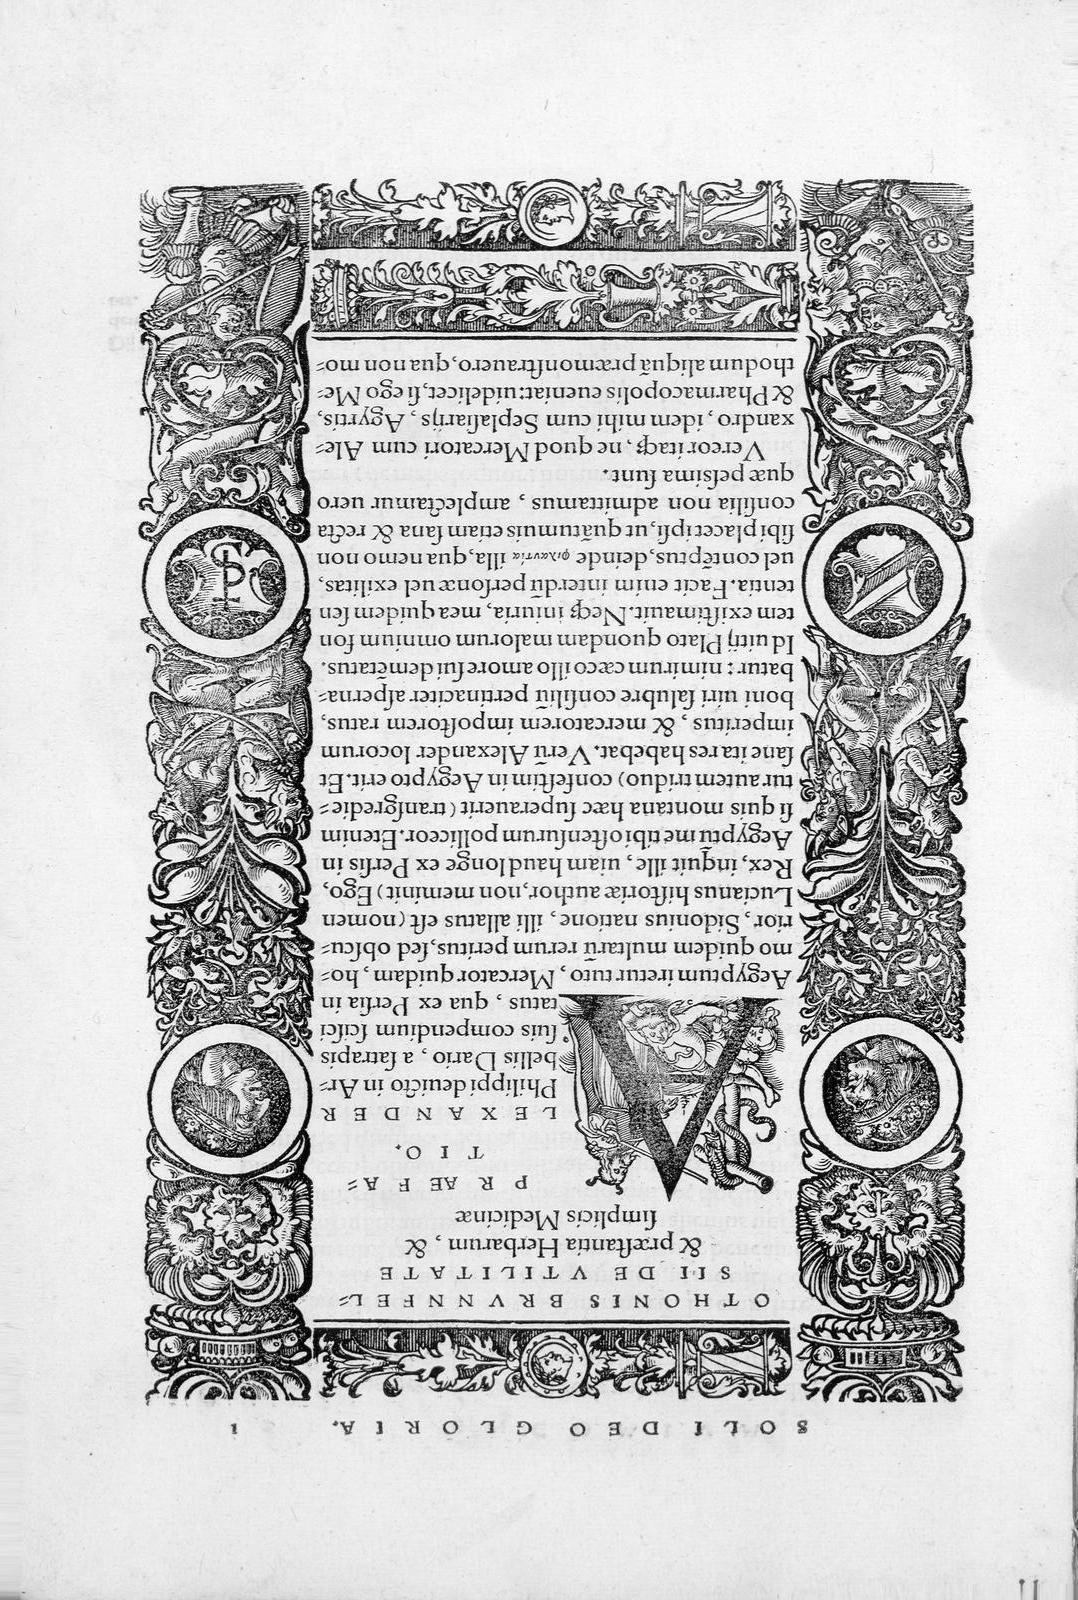 SOLI DEO GLORIA. 1
OTHONIS BRVNNFEL⸗
SII DE VTILITATE
& præſtantia Herbarum, &
ſimplicis Medicinæ
PRAEFA⸗
TIO.
ALEXANDER
Philippi deuicto in Ar⸗
bellis Dario, a ſatrapis
ſuis compendium ſciſci
tatus, qua ex Perſia in
Aegyptum iretur tuto, Mercator quidam, ho⸗
mo quidem multarū rerum peritus, ſed obſcu⸗
rior, Sidonius natione, illi allatus eſt (nomen
Lucianus hiſtoriæ author, non meminit) Ego,
Rex, inquit ille, uiam haud longe ex Perſis in
Aegyptū me tibi oſtenſurum polliceor. Etenim
ſi quis montana hæc ſuperauerit (tranſgredie⸗
tur autem triduo) confeſtim in Aegypto erit. Et
ſane ita res habebat. Verū Alexander locorum
imperitus, & mercatorem impoſtorem ratus,
boni uiri ſalubre conſiliū pertinaciter aſperna⸗
batur: nimirum cæco illo amore ſui demētatus.
Id uitij Plato quondam malorum omnium fon
tem exiſtimauit. Neqꝫ iniuria, mea quidem ſen
tentia. Facit enim interdū perſonæ uel exilitas,
uel contēptus, deinde φιλαυτία illa, qua nemo non
ſibi placet ipſi, ut quātumuis etiam ſana & recta
conſilia non admittamus, amplectamur uero
quæ peſsima ſunt.
Vereor itaqꝫ, ne quod Mercatori cum Ale⸗
xandro, idem mihi cum Seplaſiarijs, Agyrtis,
& Pharmacopolis eueniat: uidelicet, ſi ego Me⸗
thodum aliquā præmonſtrauero, qua non mo⸗